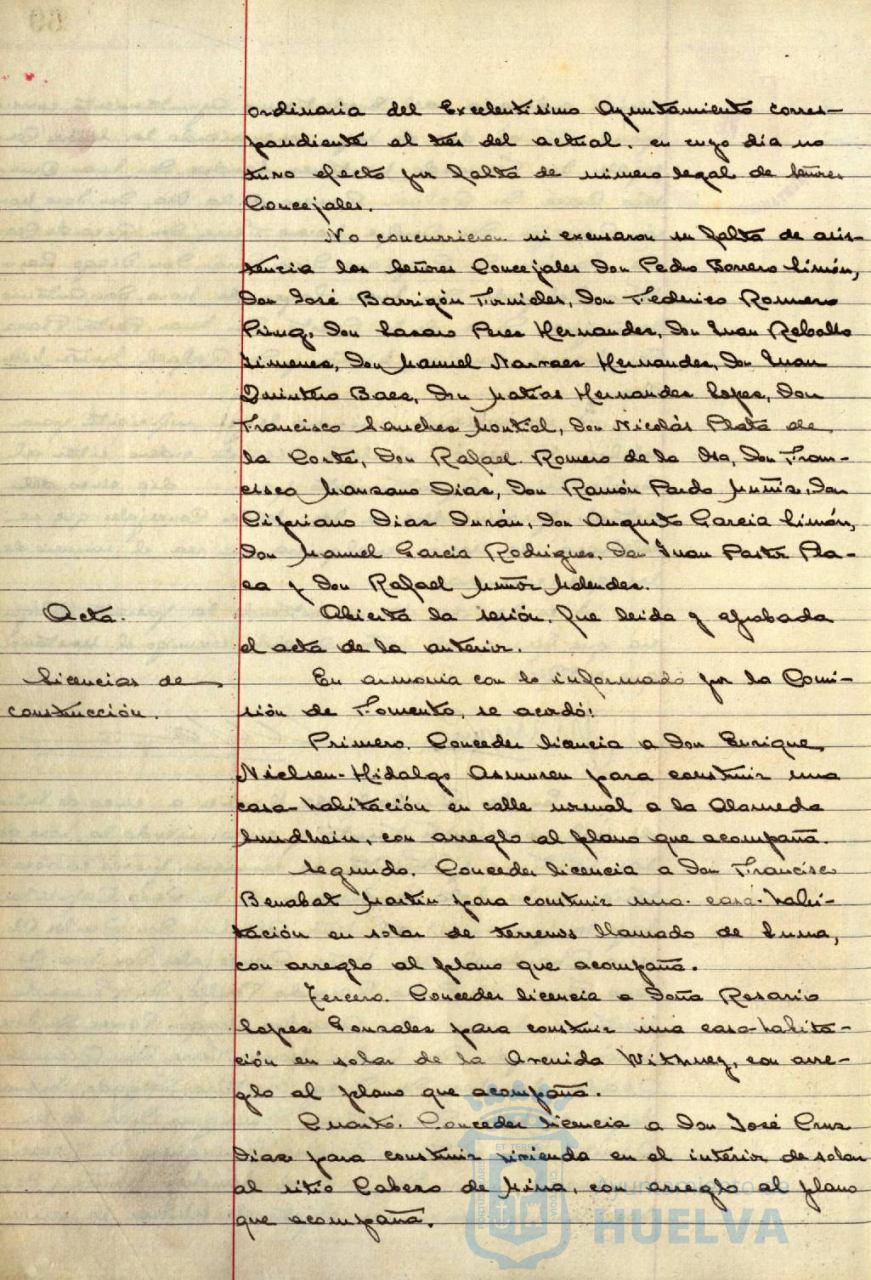 ordinaria del Excelentísimo Ayuntamiento corres-
pondiente al tres del actual, en cuyo día no
tuvo efecto por falta de número legal de Señores
Concejales.
No concurrieron ni excusaron su falta de asis-
tencia los Señores Concejales Don Pedro Borrero Limón,
Don José Barrigón Fornides, Don Federico Romero
Don Lazaro Perez Hernandez, Don Juan Rebollo
Jimenez, Don Manuel Narvaez Hernandez, Don Juan
Quintero Baez, Don Matías Hernandez Lopez, Don
Francisco Sanchez Montiel, Don Nicolás Plata de
la Corte, Don Rafael Romero de la Osa, Don Fran-
cisco Manzano Diaz, Don Ramón Pardo Muñiz, Don
Cipriano Diaz Durán, Don Augusto Garcia Limón,
Don Manuel García Rodriguez, Don Juan Pastor Pla-
za y Don Rafael Muñoz Melendez.
Acta.
Abierta la sesión, fue leida y aprobada
el acta de la anterior.
Licencias de
construcción.
En armonia con lo informado por la Comi-
sión de Fomento, se acordó:
Primero. Conceder licencia a Don Enrique
Nielsen-Hidalgo Asmusen para construir una
casa-habitación en calle normal a la Alameda
Sundhein, con arreglo al plano que acompaña.
Segundo. Conceder licencia a Don Francisco
Benabat Martín para construir una casa-habi-
tación en solar de terrenos llamado de
con arreglo al plano que acompaña.
Tercero. Conceder licencia a Doña Rosario
Lopez Gonzalez para construir una casa-habita-
ción en solar de la Avenida con arre-
glo al plano que acompaña.
Cuarto. Conceder licencia a Don José Cruz
Diaz para construir vivienda en el interior de solar
al sitio Cabezo de Mina, con arreglo al plano
que acompaña.
HUELVA